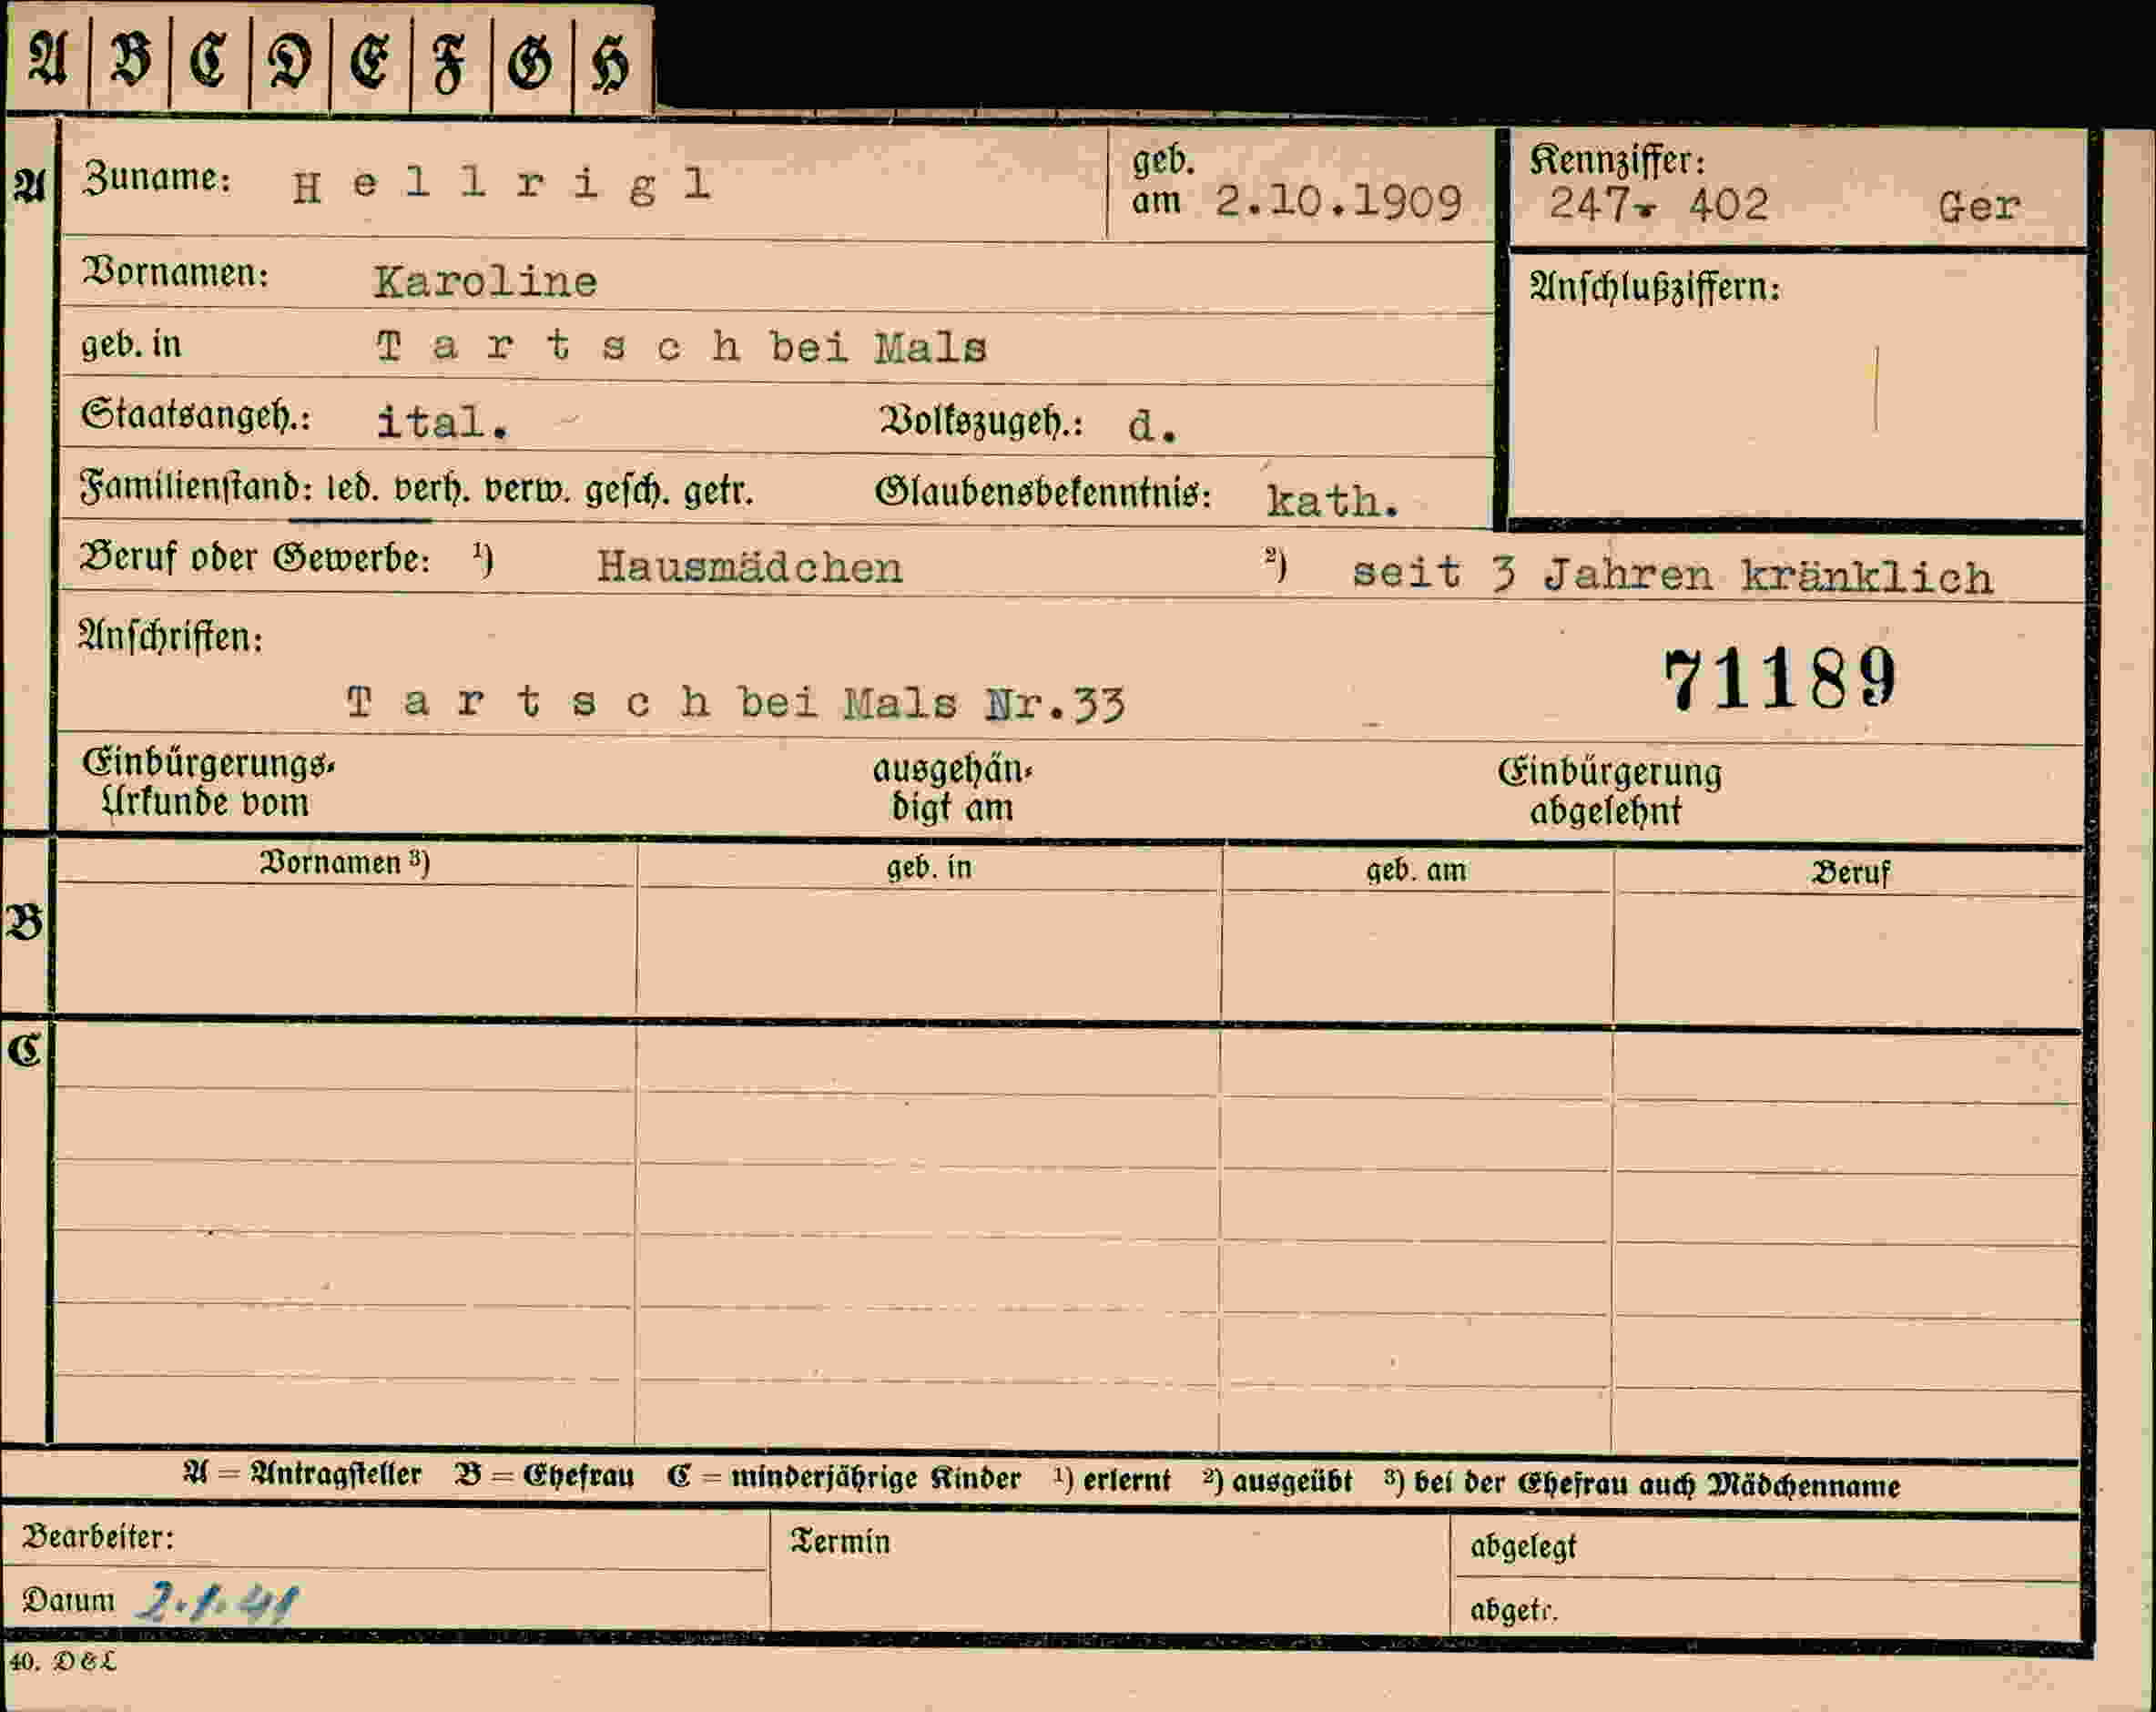 A B C D E F G H
A Zuname: Hellrigl geb. am 2.10.1909 Kennziffer: 247- 402 Ger
Vornamen: Karoline Anschlußziffern:
geb. in Tartsch bei Mals
Staatsangeh.: ital. Volkszugeh.: d.
Familienstand: led. verh. verw. gesch. getr. Glaubensbekenntnis: kath.
Beruf oder Gewerbe: ¹) Hausmädchen ²) seit 3 Jahren kränklich
Anschriften:
71189
Tartsch bei Mals Nr.33
Einbürgerungs- ausgehän- Einbürgerung
Urkunde vom digt am abgelehnt
Vornamen ³) geb. in geb. am Beruf
B
C
A = Antragsteller B = Ehefrau C = minderjährige Kinder ¹) erlernt ²) ausgeübt ³) bei der Ehefrau auch Mädchenname
Bearbeiter: Termin abgelegt
Datum 2.1.41 abgetr.
40. D&L